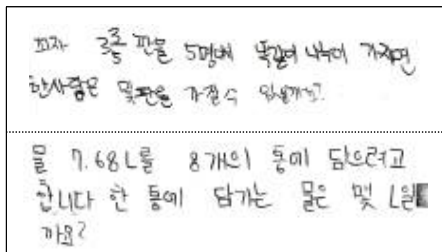 피자 3 3/5 판을 5명에 똑같이 나누어 가지면
한사람은 몇판을 가질수 있을까?
물 7.68L를 8개의 통에 담으려고
합니다 한 통에 담기는 물은 몇 L일
까요?